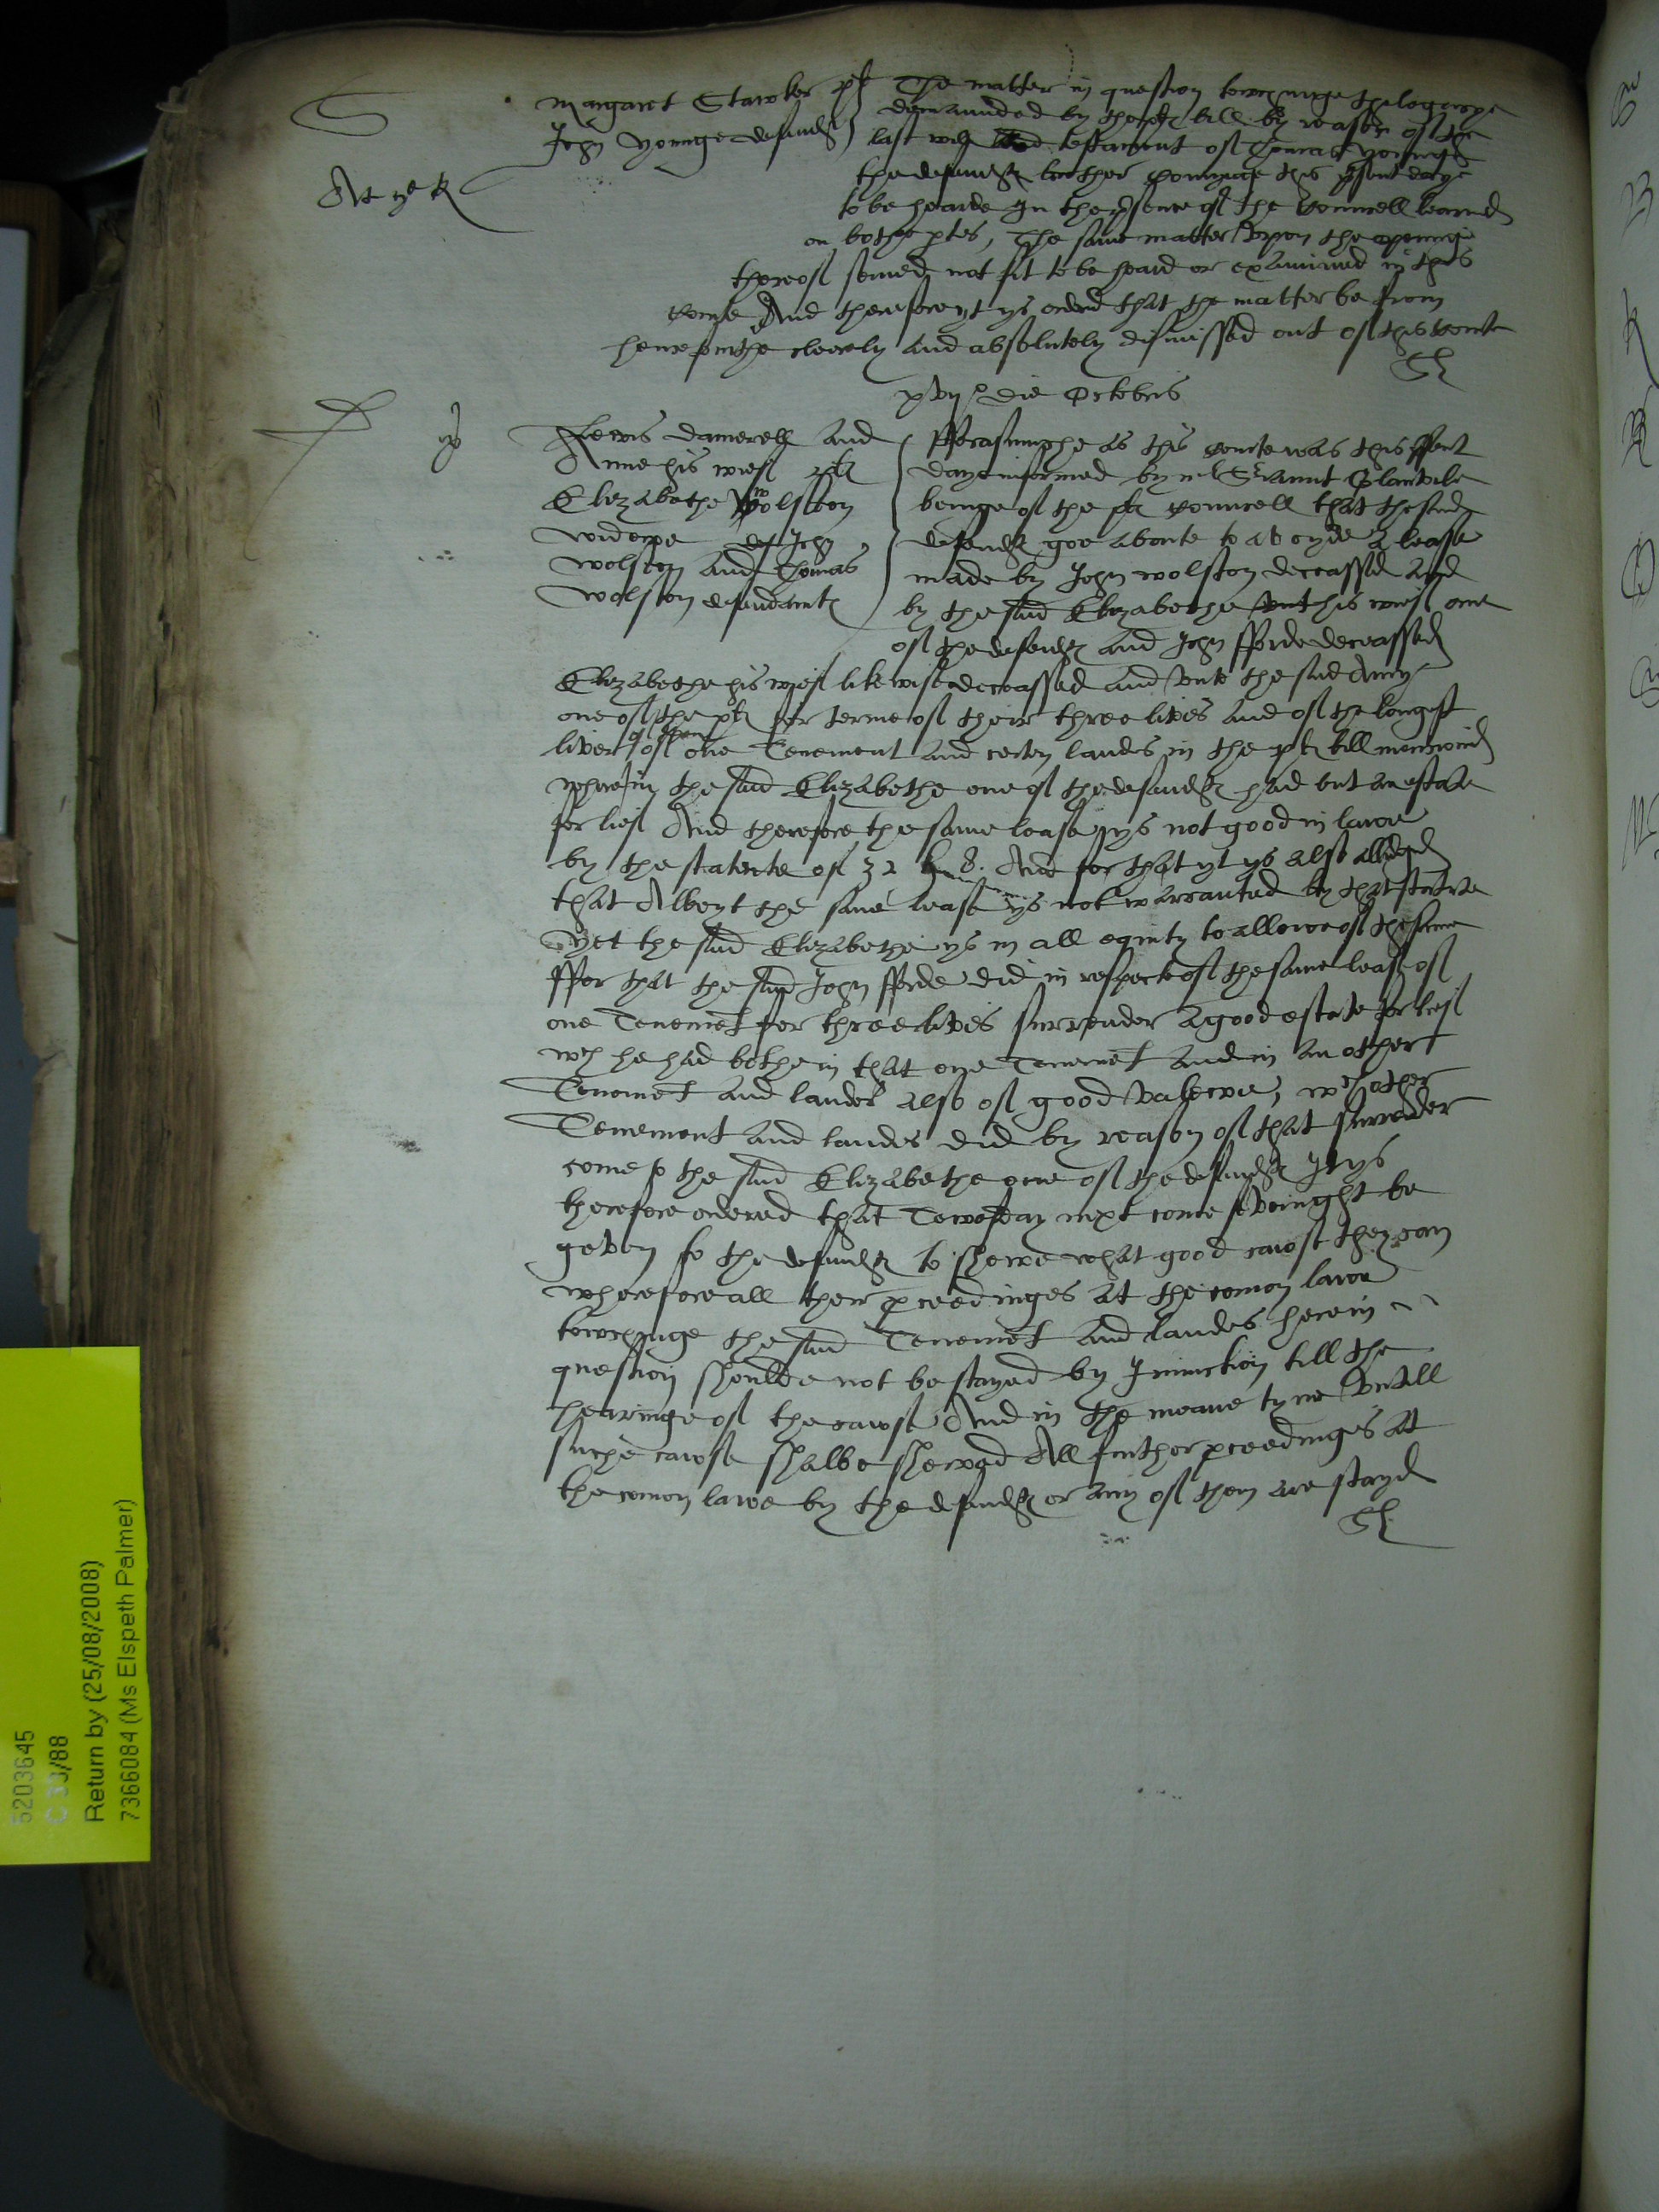 S
Margaret Stawker pl The matter in question towchinge the legacye
John Younge defendt demaunded by the pl bill by reason of the
last will testament of Thomas Younge
the defendt brother comynge this psent daye
to be hearde In the psence of the Councell learned
on bothe ptes, The same matter vpon the openinge
thereof semed not fit to be heard or examined in this
Courte And therefore yt ys ordred that the matter be from
henceforthe clerely and absolutely dismissed out of this Courte
xvijo die Octobris
Lewis Damerell and
Anne his wief plt
Elizabethe Wolston
widowe John
Wolston And Thomas
Wolston defendantes
fforasmuche as this Courte was this psent
daye informed by mr Seriaunt Glanvile
beinge of the pl Councell that the said
defendt goe aboute to avoyde a lease
made by John Wolston deceassed and
by the said Elizabethe then his wief one
of the defendt and John fforde deceassed
Elizabethe his wief likewise deceassed and vnto the said Anny
one of the pl for terme of their three lives and of the longest
liver of them of one Tenement and certen landes in the pl bill mencioned
wherein the said Elizabethe one of the defendt had but an estate
for lief And therefore the same lease ys not good in lawe
by the statute of 32 H. 8. And for that yt ys also alledged
that Albeyt the same lease ys not warranted by that statute
yet the said Elizabethe ys in all equity to allowe of the same
ffor that the said John fforde did in respecte of the same lease of
one Tenemet for three lives surrender a good estate for lief
wch he had bothe in that one Tenemet and in an other
Tenemet and landes also of good valewe, wch other
Tenement and landes did by reason of that surrender
come to the said Elizabethe one of the defendt Yt ys
therefore ordered that Tewesday next come sevenight be
geven to the defendt to shewe what good cawse they can
wherefore all ther pceedinges at the comon lawe
towchinge the said Tenemet and landes herein
question shoulde not be stayed by Iniunction till the
hearinge of the cawse And in the meane tyme vntill
suche cawse shalbe shewed All further pceedinges at
the comon lawe by the defendt or any of them are stayed
5203645
C 33/88
Return by (25/08/2008)
7366084 (Ms Elspeth Palmer)